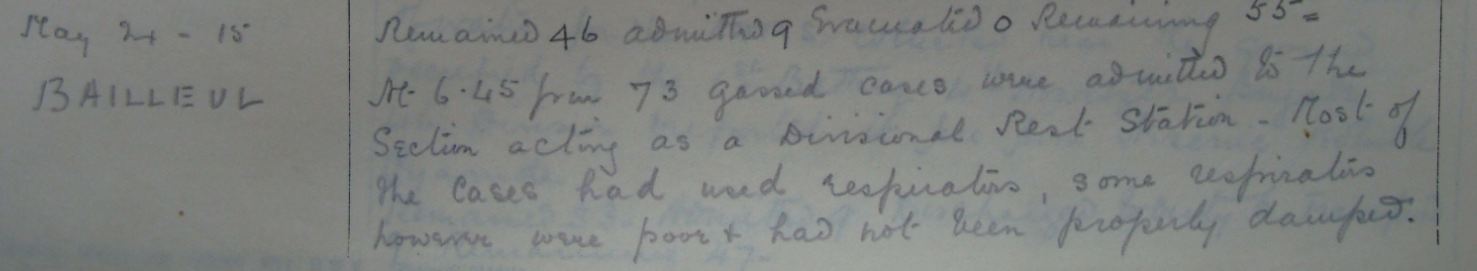 May 24 - 15 Remained 46 admitted 9 Evacuated 0 Remaining 55 =
BAILLEUL At 6.45 pm 73 gassed cases were admitted to the
Section acting as a Divisional Rest Station - Most of
the cases had used respirators, some respirators
however were poor + had not been properly damped.